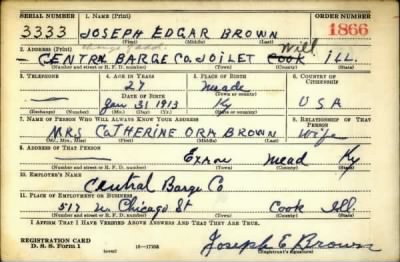 SERIAL NUMBER 1. NAME (Print) ORDER NUMBER
3333 JOSEPH EDGAR BROWN 1866
(First) (Middle) (Last)
2. ADDRESS (Print) Will
CENTRAL BARGE CO. JOILET Cook ILL.
(Number and street or R. F. D. number) (Town) (County) (State)
3. TELEPHONE 4. AGE IN YEARS 5. PLACE OF BIRTH 6. COUNTRY OF CITIZENSHIP
27 Meade
DATE OF BIRTH (Town or county)
Jan 31 1913 Ky USA
(Exchange) (No.) (Mo.) (Day) (Yr.) (State or country)
7. NAME OF PERSON WHO WILL ALWAYS KNOW YOUR ADDRESS 8. RELATIONSHIP OF THAT PERSON
MRS CATHERINE ORA BROWN Wife
(Mr., Mrs., Miss) (First) (Middle) (Last)
9. ADDRESS OF THAT PERSON
Mead Ky
(Number and street or R. F. D. number) (Town) (County) (State)
10. EMPLOYER'S NAME
Central Barge Co
11. PLACE OF EMPLOYMENT OR BUSINESS
517 N. Chicago St Cook Ill.
(Number and street or R. F. D. number) (Town) (County) (State)
I AFFIRM THAT I HAVE VERIFIED ABOVE ANSWERS AND THAT THEY ARE TRUE.
REGISTRATION CARD
D. S. S. Form 1 16—17105 Joseph E Brown
(Registrant's signature)